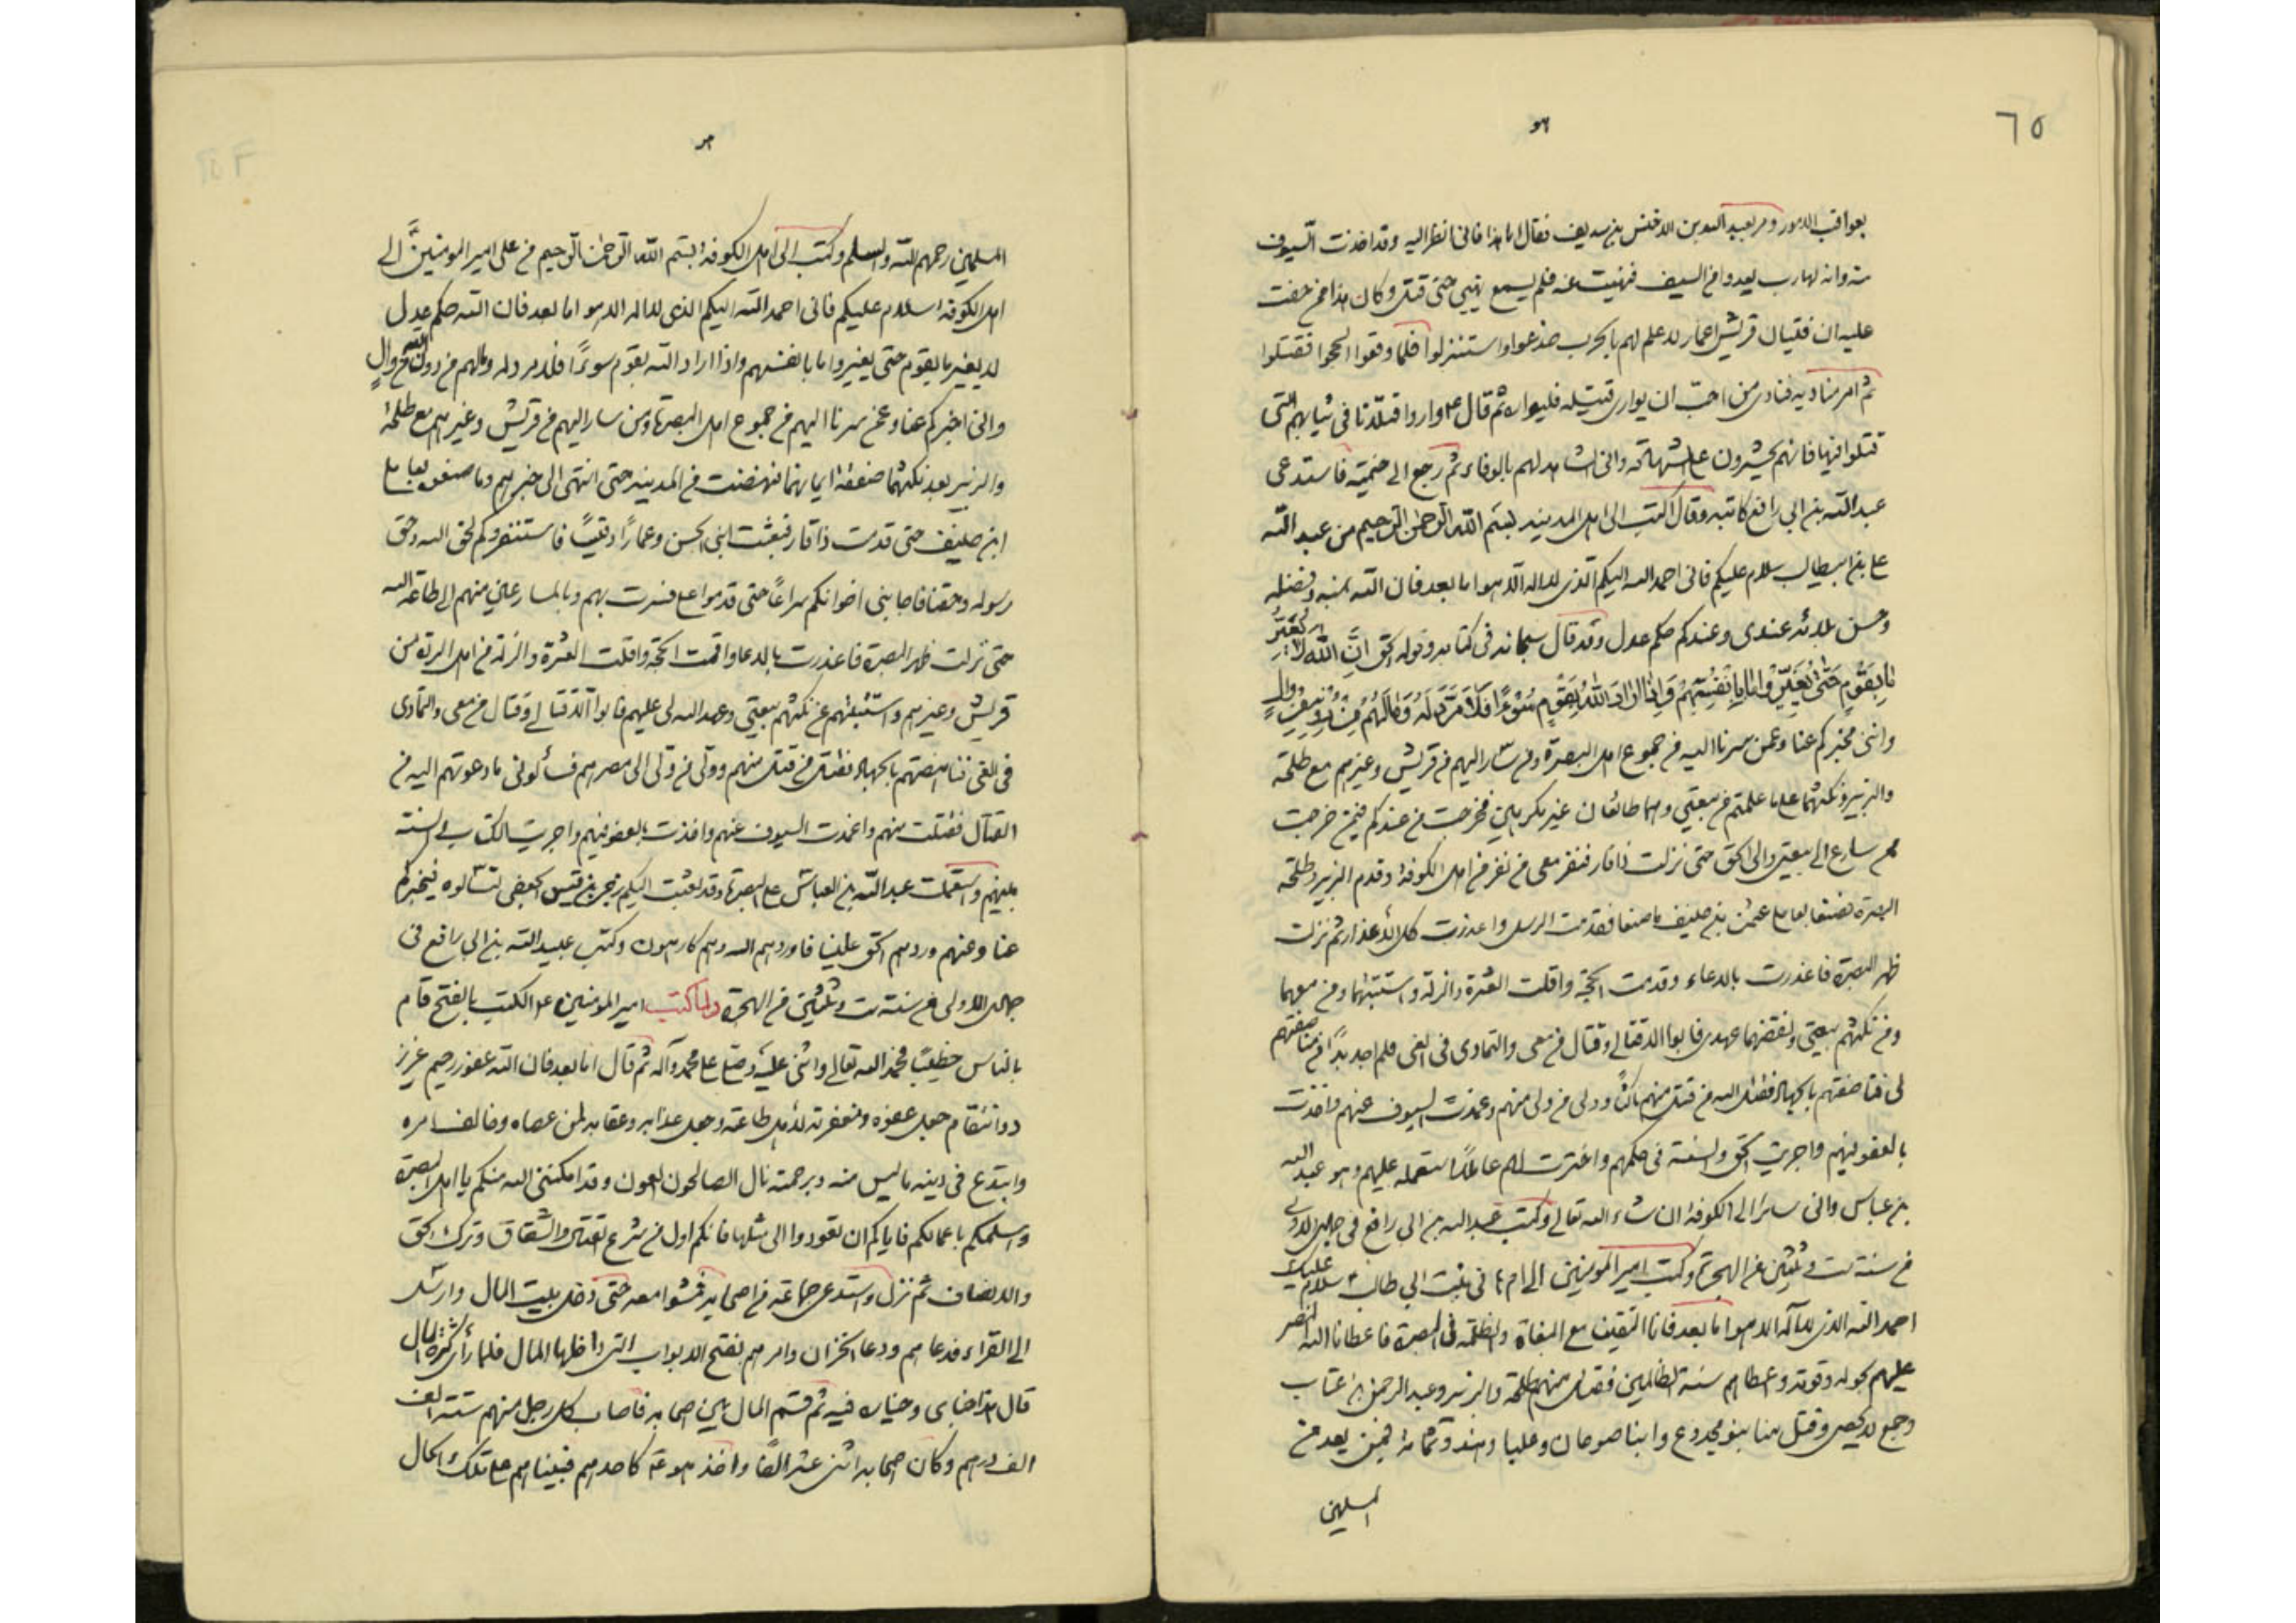 ٦٥
هو
بعواقب الامور ومر بعبد الله بن الاخنس بن شريف فقال اما هذا فانى انظر اليه وقد اخذت السيوف
منه وانه لهارب يعدو من السيف فنهيت عنه فلم يسمع نهيى حتى قتل وكان هذا ممن خفت
عليه ان فتيان قريش اغمار لا علم لهم بالحرب خدعوا واستنزلوا فلما وقعوا الحجوا فقتلوا
ثم امر مناديه فنادى من احب ان يوارى قتيله فليواره ثم قال ع واروا قتلانا فى ثيابهم التى
قتلوا فيها فانهم يحشرون على الشهادة وانى لشاهد لهم بالوفاء ثم رجع الى خيمته فاستدعى
عبد الله بن ابي رافع كاتبه وقال اكتب الى اهل المدينه بسم الله الرحمن الرحيم من عبد الله
على بن ابيطالب سلام عليكم فانى احمد الله اليكم الذى لا اله الا هو اما بعد فان الله بمنه وفضله
وحسن بلائه عندى وعندكم حكم عدل وقد قال سبحانه فى كتابه وقوله الحق ان الله لا يغير
ما بقوم حتى يغيروا ما بانفسهم واذا اراد الله بقوم سوءا فلا مرد له وما لهم من دونه من وال
وانى مخبركم عنا وعمن سرنا اليه من جموع اهل البصرة ومن سار اليهم من قريش وغيرهم مع طلحه
والزبير ونكثهما على ما علمتم من بيعتي وهما طائعان غير مكرهين فخرجت من عندكم فيمن خرجت
ممن سارع الى بيعتى والى الحق حتى نزلت ذا قار فنفر معى من نفر من اهل الكوفة وقدم الزبير وطلحه
البصرة فصنعا بعاملى عثمن بن حنيف ما صنعا فقدمت الرسل واعذرت كل الاعذار ثم نزلت
ظهر البصرة فاعذرت بالدعاء وقدمت الحجة واقلت العثرة والزلة واستتبتهما ومن معهما
ومن نكثهم بيعتي ونقضهما عهدى فابوا الا قتالى وقتال من معى والتمادى فى الغى فلم اجد بدا من مناصفتهم
لى فناصفتهم بالجهاد فقتل الله من قتل منهم ناكثا وولى من ولى منهم وغمدت السيوف عنهم واخذت
بالعفو فيهم واجريت الحق والسنة فى حكمهم واخترت لهم عاملا استعمله عليهم وهو عبد الله
بن عباس وانى سائر الى الكوفة ان شاء الله تعالى وكتب عبد الله بن ابي رافع فى جمادى الاولى
من سنة ست وثلثين من الهجرة وكتب امير المومنين الى ام هانى بنت ابي طالب سلام عليك
احمد الله الذى لا اله الا هو اما بعد فانا التقينا مع البغاة والظلمة فى البصرة فاعطانا الله النصر
عليهم بحوله وقوته واعطاهم سنة الظالمين فقتل منهم طلحة والزبير وعبد الرحمن بن عتاب
وجمع لا يحصى وقتل منا بنو مجدوع وابنا صوحان وعلبا وهند وثمامة فيمن يعد من
المسلمين
هو
المسلمين رحمهم الله والسلم وكتب الى اهل الكوفة بسم الله الرحمن الرحيم من على امير المومنين الى
اهل الكوفة سلام عليكم فانى احمد الله اليكم الذى لا اله الا هو اما بعد فان الله حكم عدل
لا يغير ما بقوم حتى يغيروا ما بانفسهم واذا اراد الله بقوم سوءا فلا مرد له وما لهم من دونه من وال
وانى اخبركم عنا وعمن سرنا اليهم من جموع اهل البصرة ومن سار اليهم من قريش وغيرهم مع طلحة
والزبير بعد نكثهما صفقة ايمانهما فنهضت من المدينه حين انتهى الى خبرهم وما صنعوه بعاملى
ابن حنيف حتى قدمت ذا قار فبعثت ابنى الحسن وعمارا وقيسا فاستنفروكم لحق الله وحق
رسوله وحقنا فاجابنى اخوانكم سراعا حتى قدموا على فسرت بهم وبالمسارعين منهم الى طاعة الله
حتى نزلت ظهر البصرة فاعذرت بالدعا واقمت الحجة واقلت العثرة والزلة من اهل الردة من
قريش وغيرهم واستتبتهم عن نكثهم بيعتي وعهد الله لى عليهم فابوا الا قتالى وقتال من معى والتمادى
فى الغى فناهضتهم بالجهاد فقتل من قتل منهم وولى من ولى الى مصرهم فسألونى ما دعوتهم اليه من
القتال فقبلت منهم واغمدت السيوف عنهم واخذت بالعفو فيهم واجريت الحق والسنة
بينهم واستعملت عبد الله بن العباس على البصرة وقد بعثت اليكم زحر بن قيس الجعفى لتسألوه فيخبركم
عنا وعنهم وردهم الحق علينا فاوردهم الله وهم كارهون وكتب عبيد الله بن ابى رافع فى
جمادى الاولى من سنة ست وثلثين من الهجرة ولما كتب امير المومنين ع الكتب بالفتح قام
بالناس خطيبا فحمد الله تعالى واثنى عليه وصلى على محمد وآله ثم قال اما بعد فان الله غفور رحيم عزيز
ذو انتقام جعل عفوه ومغفرته لاهل طاعته وجعل عذابه وعقابه لمن عصاه وخالف امره
وابتدع فى دينه ما ليس منه وبرحمته نال الصالحون العون وقد امكننى الله منكم يا اهل البصرة
واسلمكم باعمالكم فاياكم ان تعودوا الى مثلها فانكم اول من شرع القتال والشقاق وترك الحق
والانصاف ثم نزل واستدعى جماعة من اصحابه فمشوا معه حتى دخل بيت المال وارسل
الى القراء فدعاهم ودعا الخزان وامرهم بفتح الابواب التى داخلها المال فلما رأى كثرة المال
قال هذا جناى وخياره فيه ثم قسم المال بين اصحابه فاصاب كل رجل منهم ستة الف
الف درهم وكان اصحابه اثنى عشر الفا واخذ هو ع كاحدهم فبيناهم على تلك الحال